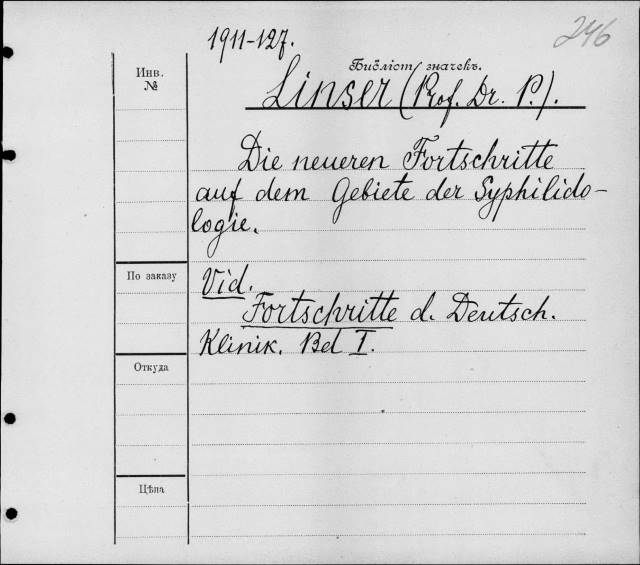 1911-127.
246
Библіот. значекъ.
Инв.
№
Linser (Prof. Dr. P.).
Die neueren Fortschritte
auf dem Gebiete der Syphilido-
logie.
По заказу
Vid.
Fortschritte d. Deutsch.
Klinik. Bd I.
Откуда
Цѣна